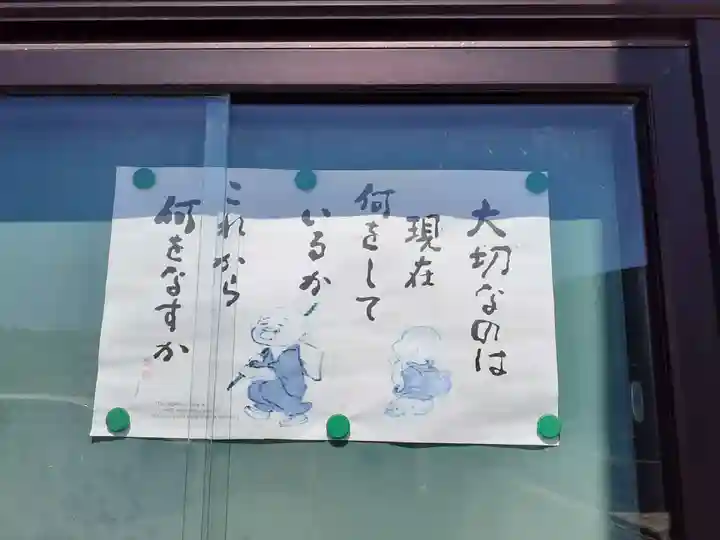 大切なのは
現在
何をして
いるか
これから
何をなすか